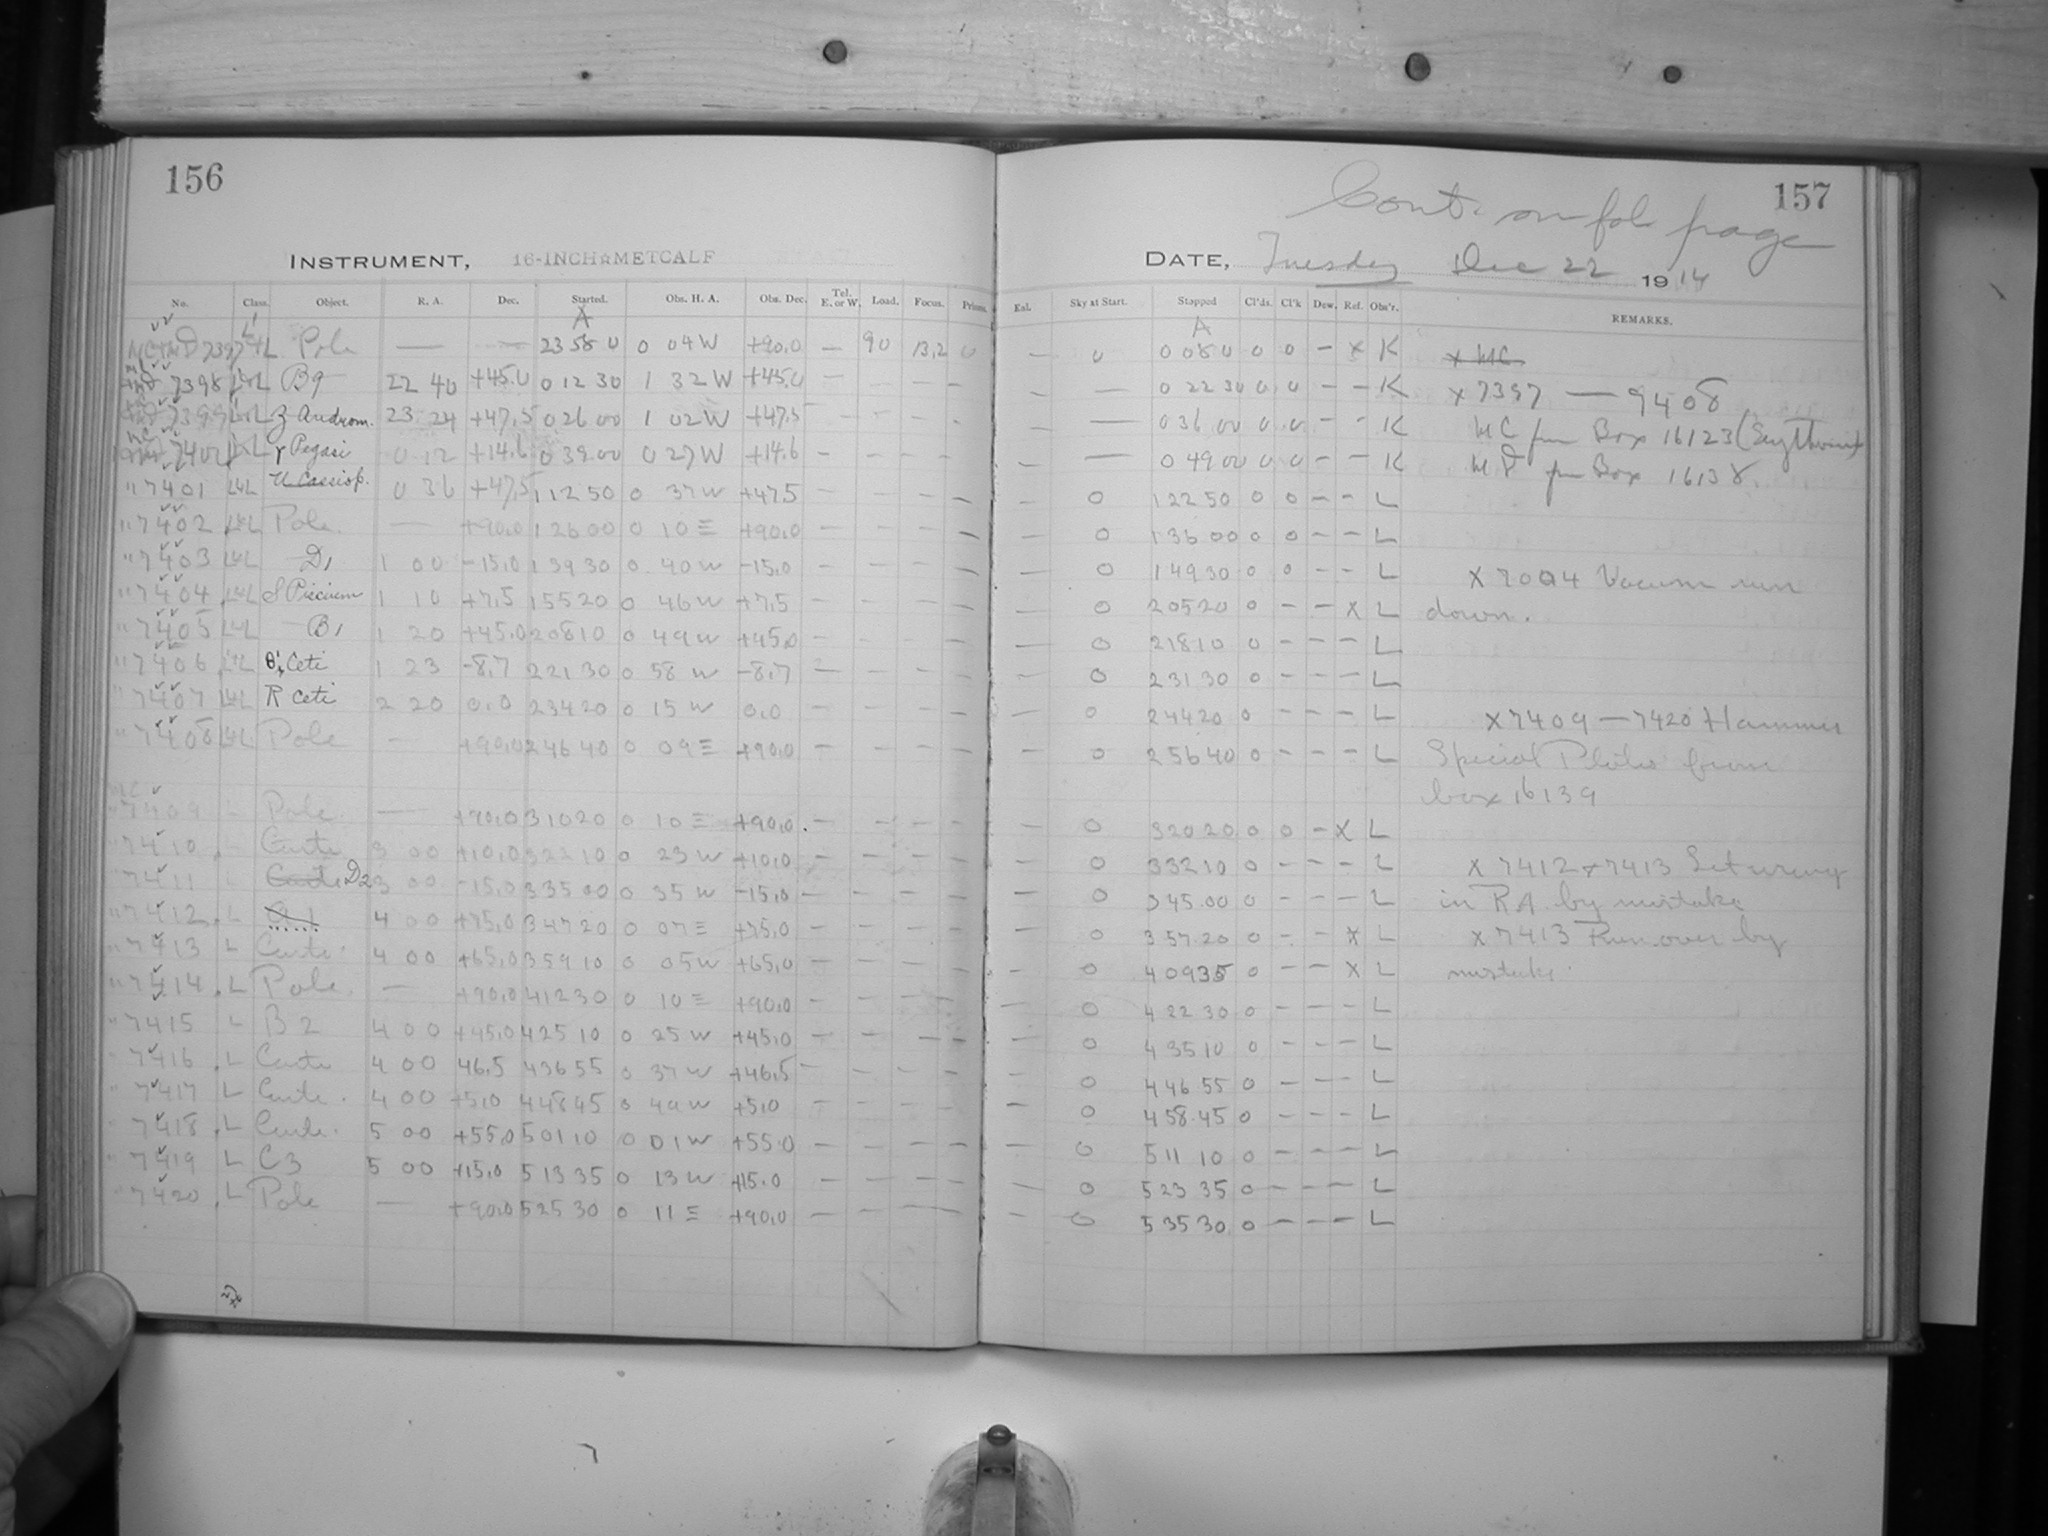 156
INSTRUMENT, 16-INCH☆METCALF
No. Class. Object. R. A. Dec. Started. Obs. H. A. Obs. Dec. Tel. E. or W. Load. Focus. Prisms.
A
7397 L Pole — — 23 58 0 0 04 W +90.0 — 90 13.2 0
7398 L B9 22 40 +45.0 0 12 30 1 32 W +45.0 — — — —
7399 L Z Androm. 23 24 +47.5 0 26 00 1 02 W +47.5 — — — —
L γ Pegasi 0 12 +14.6 0 39 00 0 27 W +14.6 — — — —
" 7401 L U Cassiop. 0 36 +47.5 1 12 50 0 37 W +47.5 — — — —
" 7402 L Pole. — +90.0 1 26 00 0 10 E +90.0 — — — —
" 7403 L D1 1 00 -15.0 1 39 30 0 40 W -15.0 — — — —
" 7404 L S Piscium 1 10 +7.5 1 55 20 0 46 W +7.5 — — — —
" 7405 L B1 1 20 +45.0 2 08 10 0 49 W +45.0 — — — —
" 7406 L θ' Ceti 1 23 -8.7 2 21 30 0 58 W -8.7 — — — —
" 7407 L R Ceti 2 20 0.0 2 34 20 0 15 W 0.0 — — — —
" 7408 L Pole — +90.0 2 46 40 0 09 E +90.0 — — — —
" 7409 L Pole — +90.0 3 10 20 0 10 E +90.0 — — — —
" 7410 L Cente 3 00 +10.0 3 22 10 0 23 W +10.0 — — — —
" 7411 L Cente D2 3 00 -15.0 3 35 00 0 35 W -15.0 — — — —
" 7412 L A1 4 00 +75.0 3 47 20 0 07 E +75.0 — — — —
" 7413 L Cente. 4 00 +65.0 3 59 10 0 05 W +65.0 — — — —
" 7414 L Pole. — +90.0 4 12 30 0 10 E +90.0 — — — —
" 7415 L B2 4 00 +45.0 4 25 10 0 25 W +45.0 — — — —
" 7416 L Cente 4 00 46.5 4 36 55 0 37 W +46.5 — — — —
" 7417 L Cente. 4 00 +5.0 4 48 45 0 49 W +5.0 — — — —
" 7418 L Cente. 5 00 +55.0 5 01 10 0 01 W +55.0 — — — —
" 7419 L C3 5 00 +15.0 5 13 35 0 13 W +15.0 — — — —
" 7420 L Pole — +90.0 5 25 30 0 11 E +90.0 — — — —
157
Cont. on fol page
DATE, Tuesday Dec 22 1914
Exl. Sky at Start. Stopped Cl'ds. Cl'k Dew. Ref. Obs'r. REMARKS.
A
— 0 0 08 0 0 0 — x K x MC
— — 0 22 30 0 0 — — K x 7397 — 9408
— — 0 36 00 0 0 — — K MC from Box 16123
— — 0 49 00 0 0 — — K from Box 16138.
— 0 1 22 50 0 0 — — L
— 0 1 36 00 0 0 — — L
— 0 1 49 30 0 0 — — L x 7004 Vacuum run
— 0 2 05 20 0 — — x L down.
— 0 2 18 10 0 — — — L
— 0 2 31 30 0 — — — L
— 0 2 44 20 0 — — — L x 7409 — 7420 Hammer
— 0 2 56 40 0 — — — L Special Plates from
box 16139
— 0 3 20 20 0 0 — x L
— 0 3 32 10 0 — — — L x 7412 + 7413 Set wrong
— 0 3 45 00 0 — — — L in RA by mistake
— 0 3 57 20 0 — — x L x 7413 Run over by
— 0 4 09 35 0 — — x L mistake.
— 0 4 22 30 0 — — — L
— 0 4 35 10 0 — — — L
— 0 4 46 55 0 — — — L
— 0 4 58 45 0 — — — L
— 0 5 11 10 0 — — — L
— 0 5 23 35 0 — — — L
— 0 5 35 30 0 — — — L